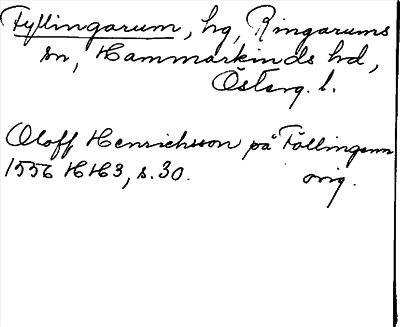 Fyllingarum, hg, Ringarums
sn, Hammarkinds hd,
Österg. l.
Oloff Henrichsson på Föllingerum
1556 HH3, s. 30.
orig.